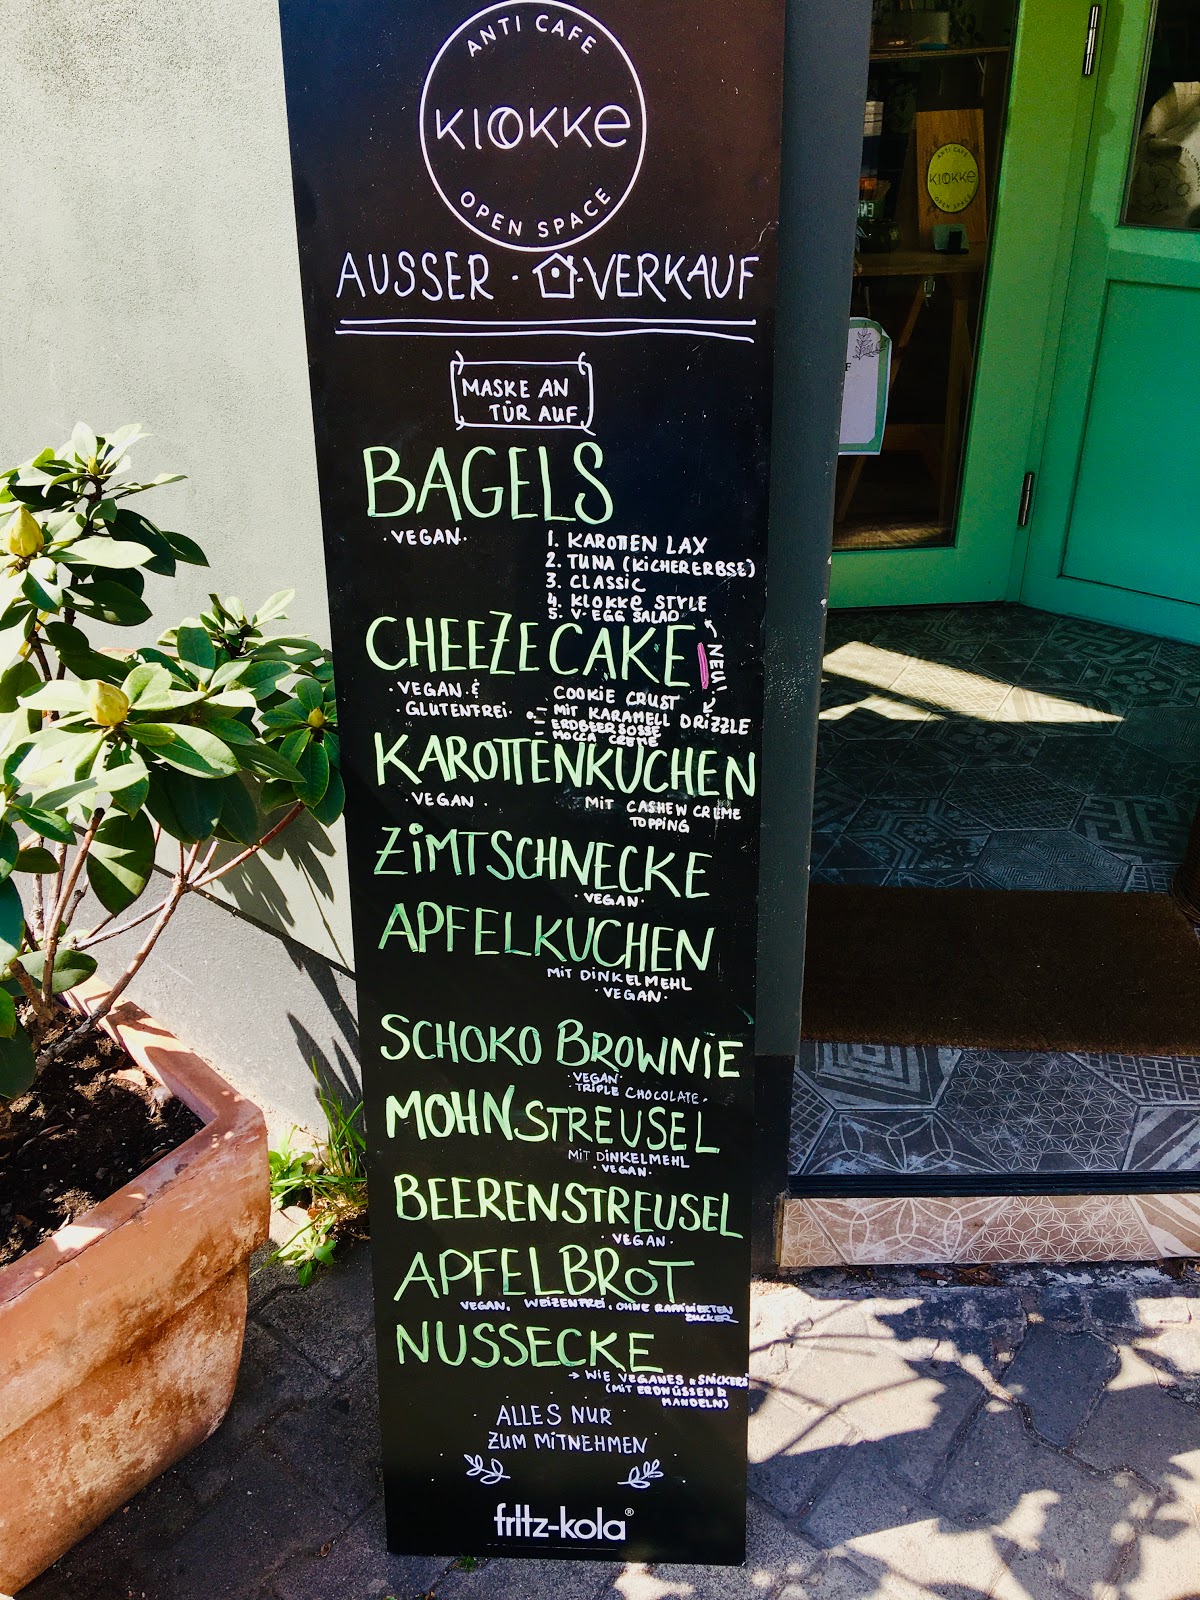 ANTI CAFE
KLOKKE
OPEN SPACE
AUSSER · VERKAUF
MASKE AN
TÜR AUF
BAGELS
· VEGAN ·
1. KAROTTEN LAX
2. TUNA (KICHERERBSE)
3. CLASSIC
4. KLOKKE STYLE
5. V. EGG SALAD
NEU!
CHEEZECAKE
· VEGAN &
· GLUTENFREI ·
COOKIE CRUST
- MIT KARAMELL DRIZZLE
- ERDBEERSOSSE
- MOCCA CREME
KAROTTENKUCHEN
· VEGAN ·
MIT CASHEW CREME
TOPPING
ZIMTSCHNECKE
· VEGAN ·
APFELKUCHEN
MIT DINKELMEHL
· VEGAN ·
SCHOKO BROWNIE
· VEGAN ·
· TRIPLE CHOCOLATE ·
MOHNSTREUSEL
MIT DINKELMEHL
· VEGAN ·
BEERENSTREUSEL
· VEGAN ·
APFELBROT
VEGAN, WEIZENFREI, OHNE RAFFINIERTEN
ZUCKER
NUSSECKE
→ WIE VEGANES SNICKERS
(MIT ERDNÜSSEN &
MANDELN)
ALLES NUR
ZUM MITNEHMEN
fritz-kola®
ANTI CAFE
KLOKKE
OPEN SPACE